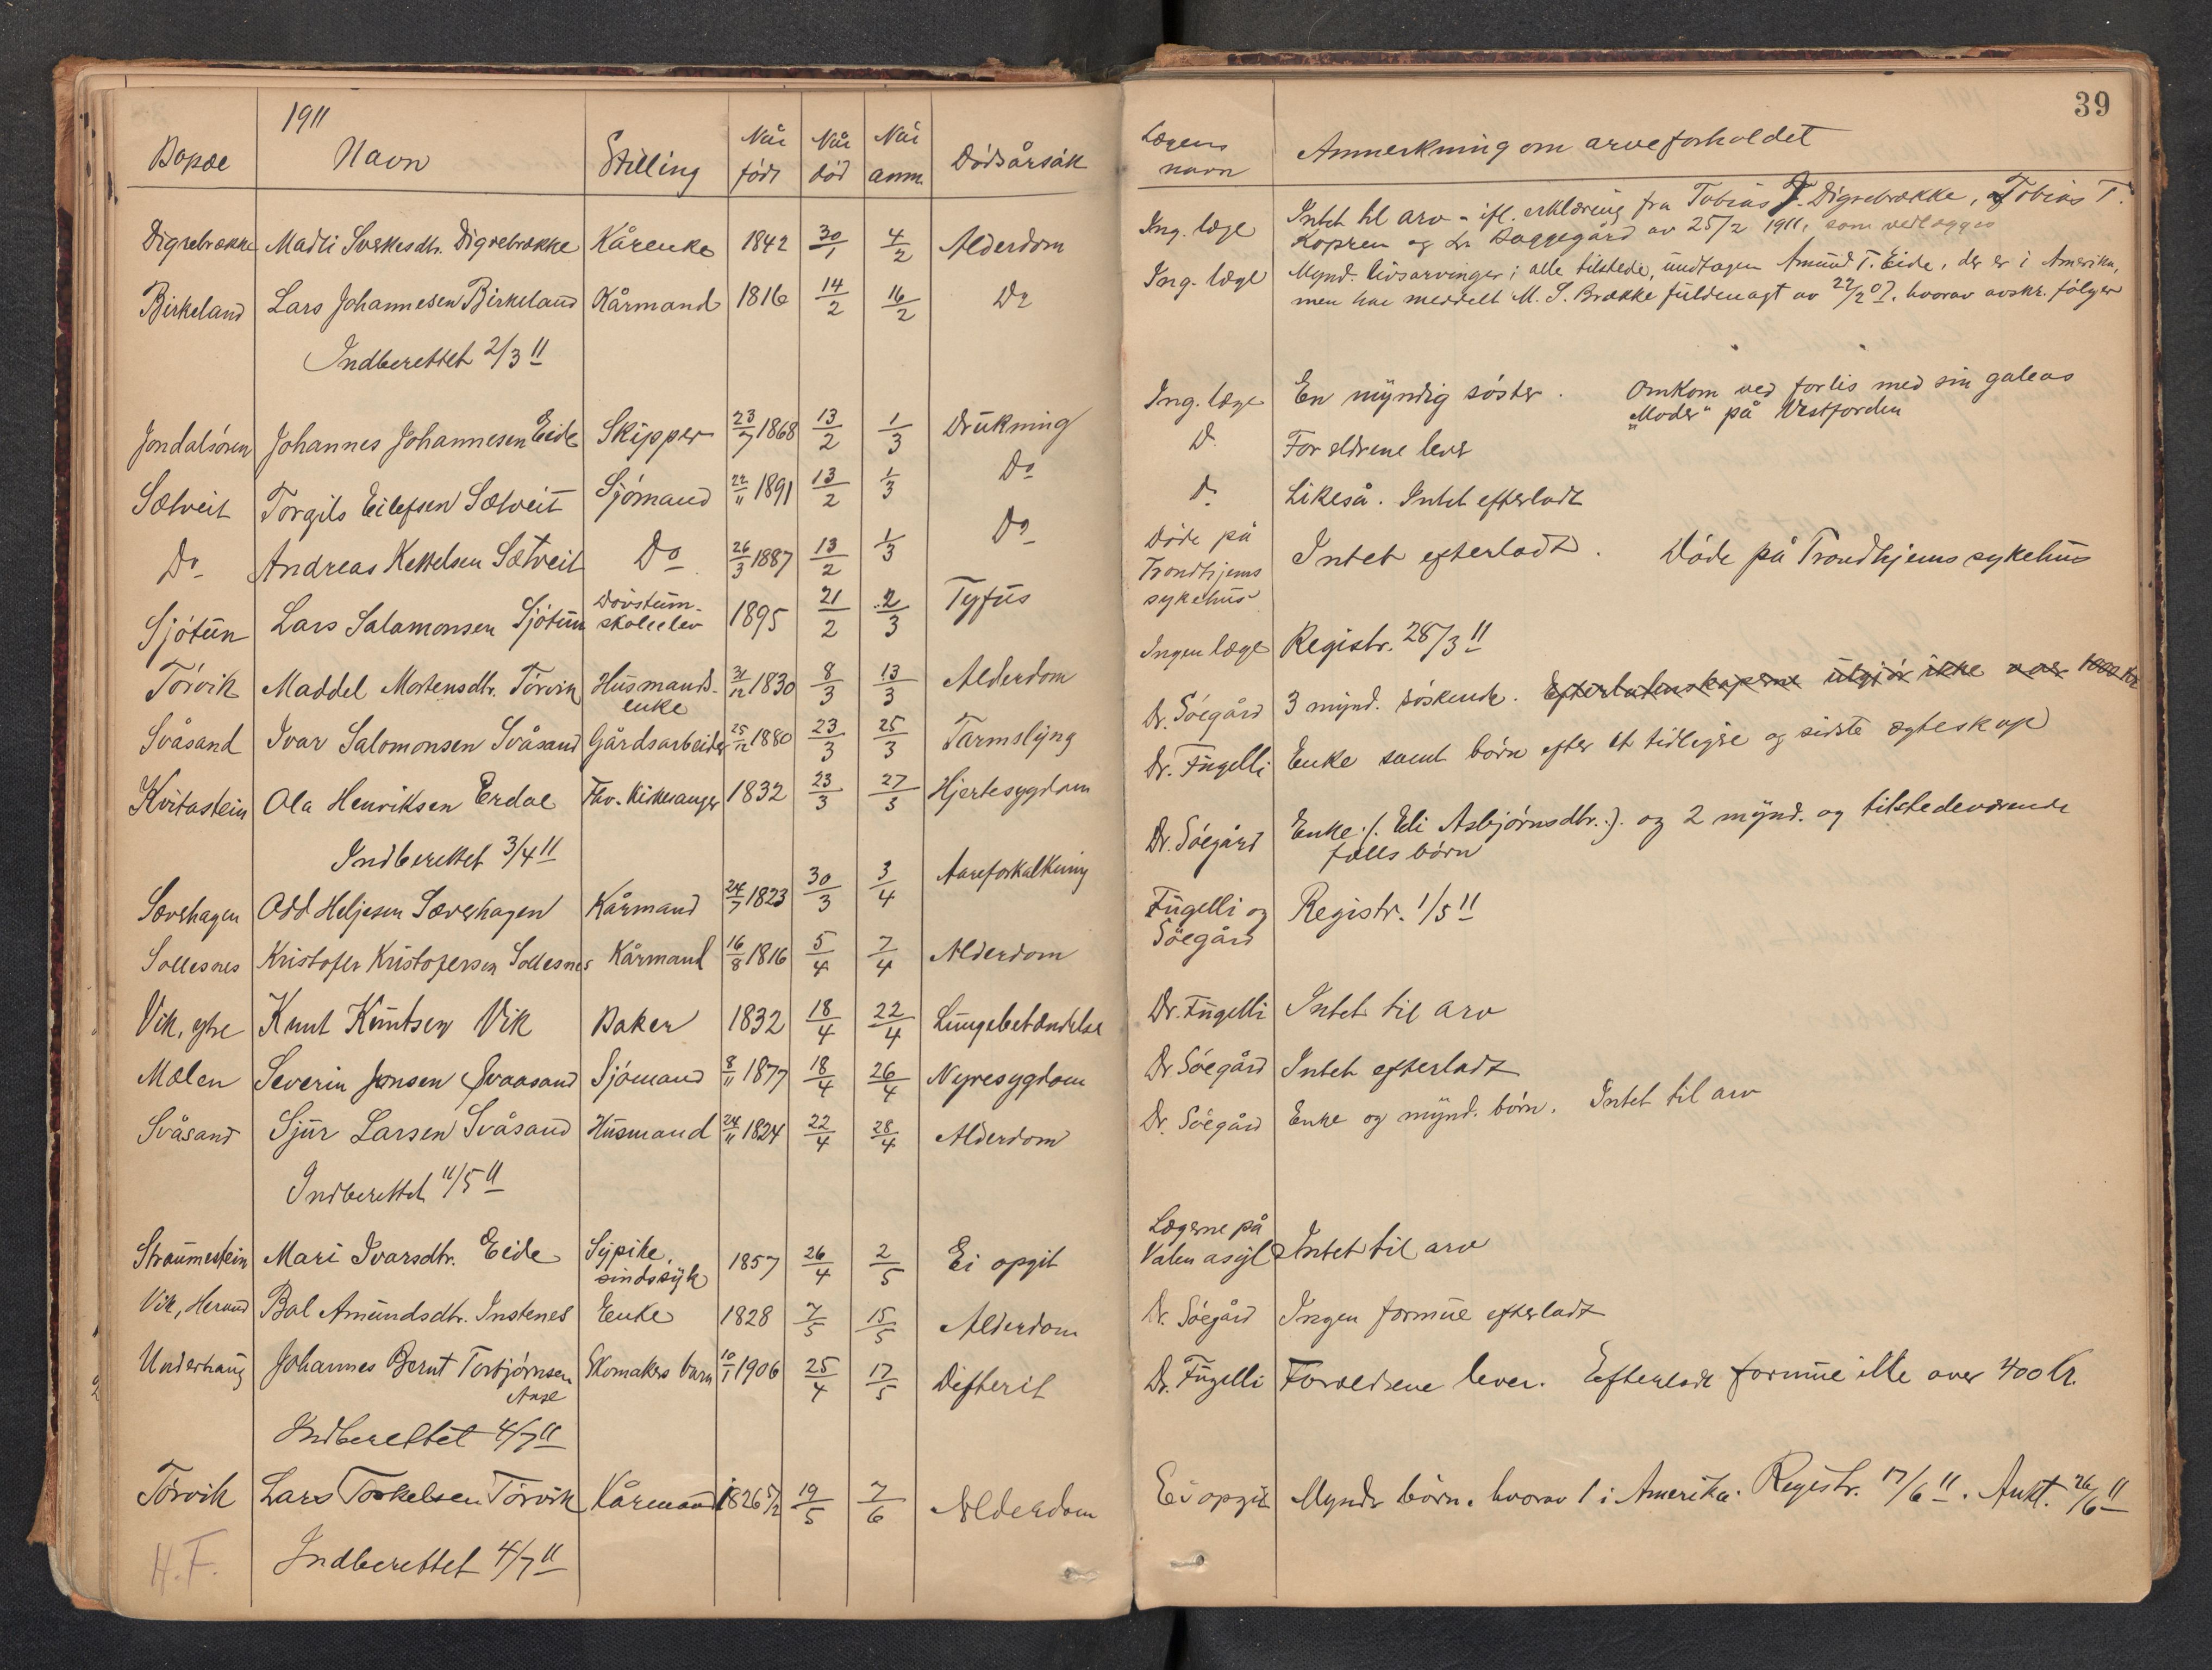 1911
Bopæl Navn Stilling Når født Når død Når anm. Dødsårsak
Digrebrække Madli Sverkesdtr. Digrebrække Kårenke 1842 30/1 4/2 Alderdom
Birkeland Lars Johannesen Birkeland Kårmand 1816 14/2 16/2 Do
Indberettet 2/3 11
Jondalsøren Johannes Johannesen Eide Skipper 23/7 1868 13/2 1/3 Drukning
Sætveit Torgils Eilefsen Sætveit Sjømand 22/11 1891 13/2 1/3 Do
Do Andreas Kettelsen Sætveit Do 26/3 1887 13/2 1/3 Do
Sjøtun Lars Salamonsen Sjøtun Døvstum-
skoleelev 1895 21/2 2/3 Tyfus
Tørvik Maddel Mortensdtr. Tørvik Husmands-
enke 31/12 1830 8/3 13/3 Alderdom
Svåsand Ivar Salomonsen Svåsand Gårdsarbeider 25/12 1880 23/3 25/3 Tarmslyng
Kvitastein Ola Henriksen Erdal Fhv. Kirkesanger 1832 23/3 27/3 Hjertesygdom
Indberettet 3/4 11
Sævehagen Odd Heljesen Sævehagen Kårmand 24/7 1823 30/3 3/4 Aareforkalkning
Sollesnes Kristofer Kristofersen Sollesnes Kårmand 16/8 1816 5/4 7/4 Alderdom
Vik, ytre Knut Knutsen Vik Baker 1832 18/4 22/4 Lungebetændelse
Mælen Severin Jonsen Svaasand Sjømand 8/11 1877 18/4 26/4 Nyresygdom
Svåsand Sjur Larsen Svåsand Husmand 24/11 1824 22/4 28/4 Alderdom
Indberettet 11/5 11
Straumestein Mari Ivarsdtr. Eide Sypike,
sindssyk 1857 26/4 2/5 Ei opgit
Vik, Herand Bal Amundsdtr. Instenes Enke 1828 7/5 15/5 Alderdom
Underhaug Johannes Bernt Torbjørnsen
Skomakers barn 10/1 1906 25/4 17/5 Difterit
Indberettet 4/7 11
Tørvik Lars Torkelsen Tørvik Kårmand 1826 5/12 19/5 7/6 Alderdom
H. F. Indberettet 4/7 11
39
Lægens navn Anmerkning om arveforholdet
Ing. læge Intet til arv - ifl. erklæring fra Tobias T. Digrebrække, Tobias T.
Kopren og Baggegård av 25/2 1911, som vedlægges
Ing. læge Mynd. livsarvinger; alle tilstede, undtagen Amund T. Eide, der er i Amerika,
men har meddelt M. S. Brække fuldmagt av 22/2 07, hvorav avskr. følger
Ing. læge En myndig søster. Omkom ved forlis med sin galeas
"Moder" på Vestfjorden
Do Forældrene lever
Do Likeså. Intet efterladt
Døde på
Trondhjems
sykehus Intet efterladt. Døde på Trondhjems sykehus
Ingen læge Registr. 28/3 11
Dr. Søegård 3 mynd. søskende. Efterlatenskaperne utgjør ikke over 1000 kr
Dr. Fugelli Enke samt børn efter et tidligere og sidste ægteskap
Dr. Søegård Enke (: Eli Asbjørnsdtr. :) og 2 mynd. og tilstedeværende
fælls børn
Fugelli og
Søegård Registr. 1/5 11
Dr. Fugelli Intet til arv
Dr. Søegård Intet efterladt
Dr. Søegård Enke og mynd. børn. Intet til arv
Lægerne på
Valen asyl Intet til arv
Dr. Søegård Ingen formue efterladt
Dr. Fugelli Forældrene lever. Efterladt formue ikke over 400 kr.
Ei opgit Mynd. børn, hvorav 1 i Amerika. Registr. 17/6 11. Aukt. 26/6 11